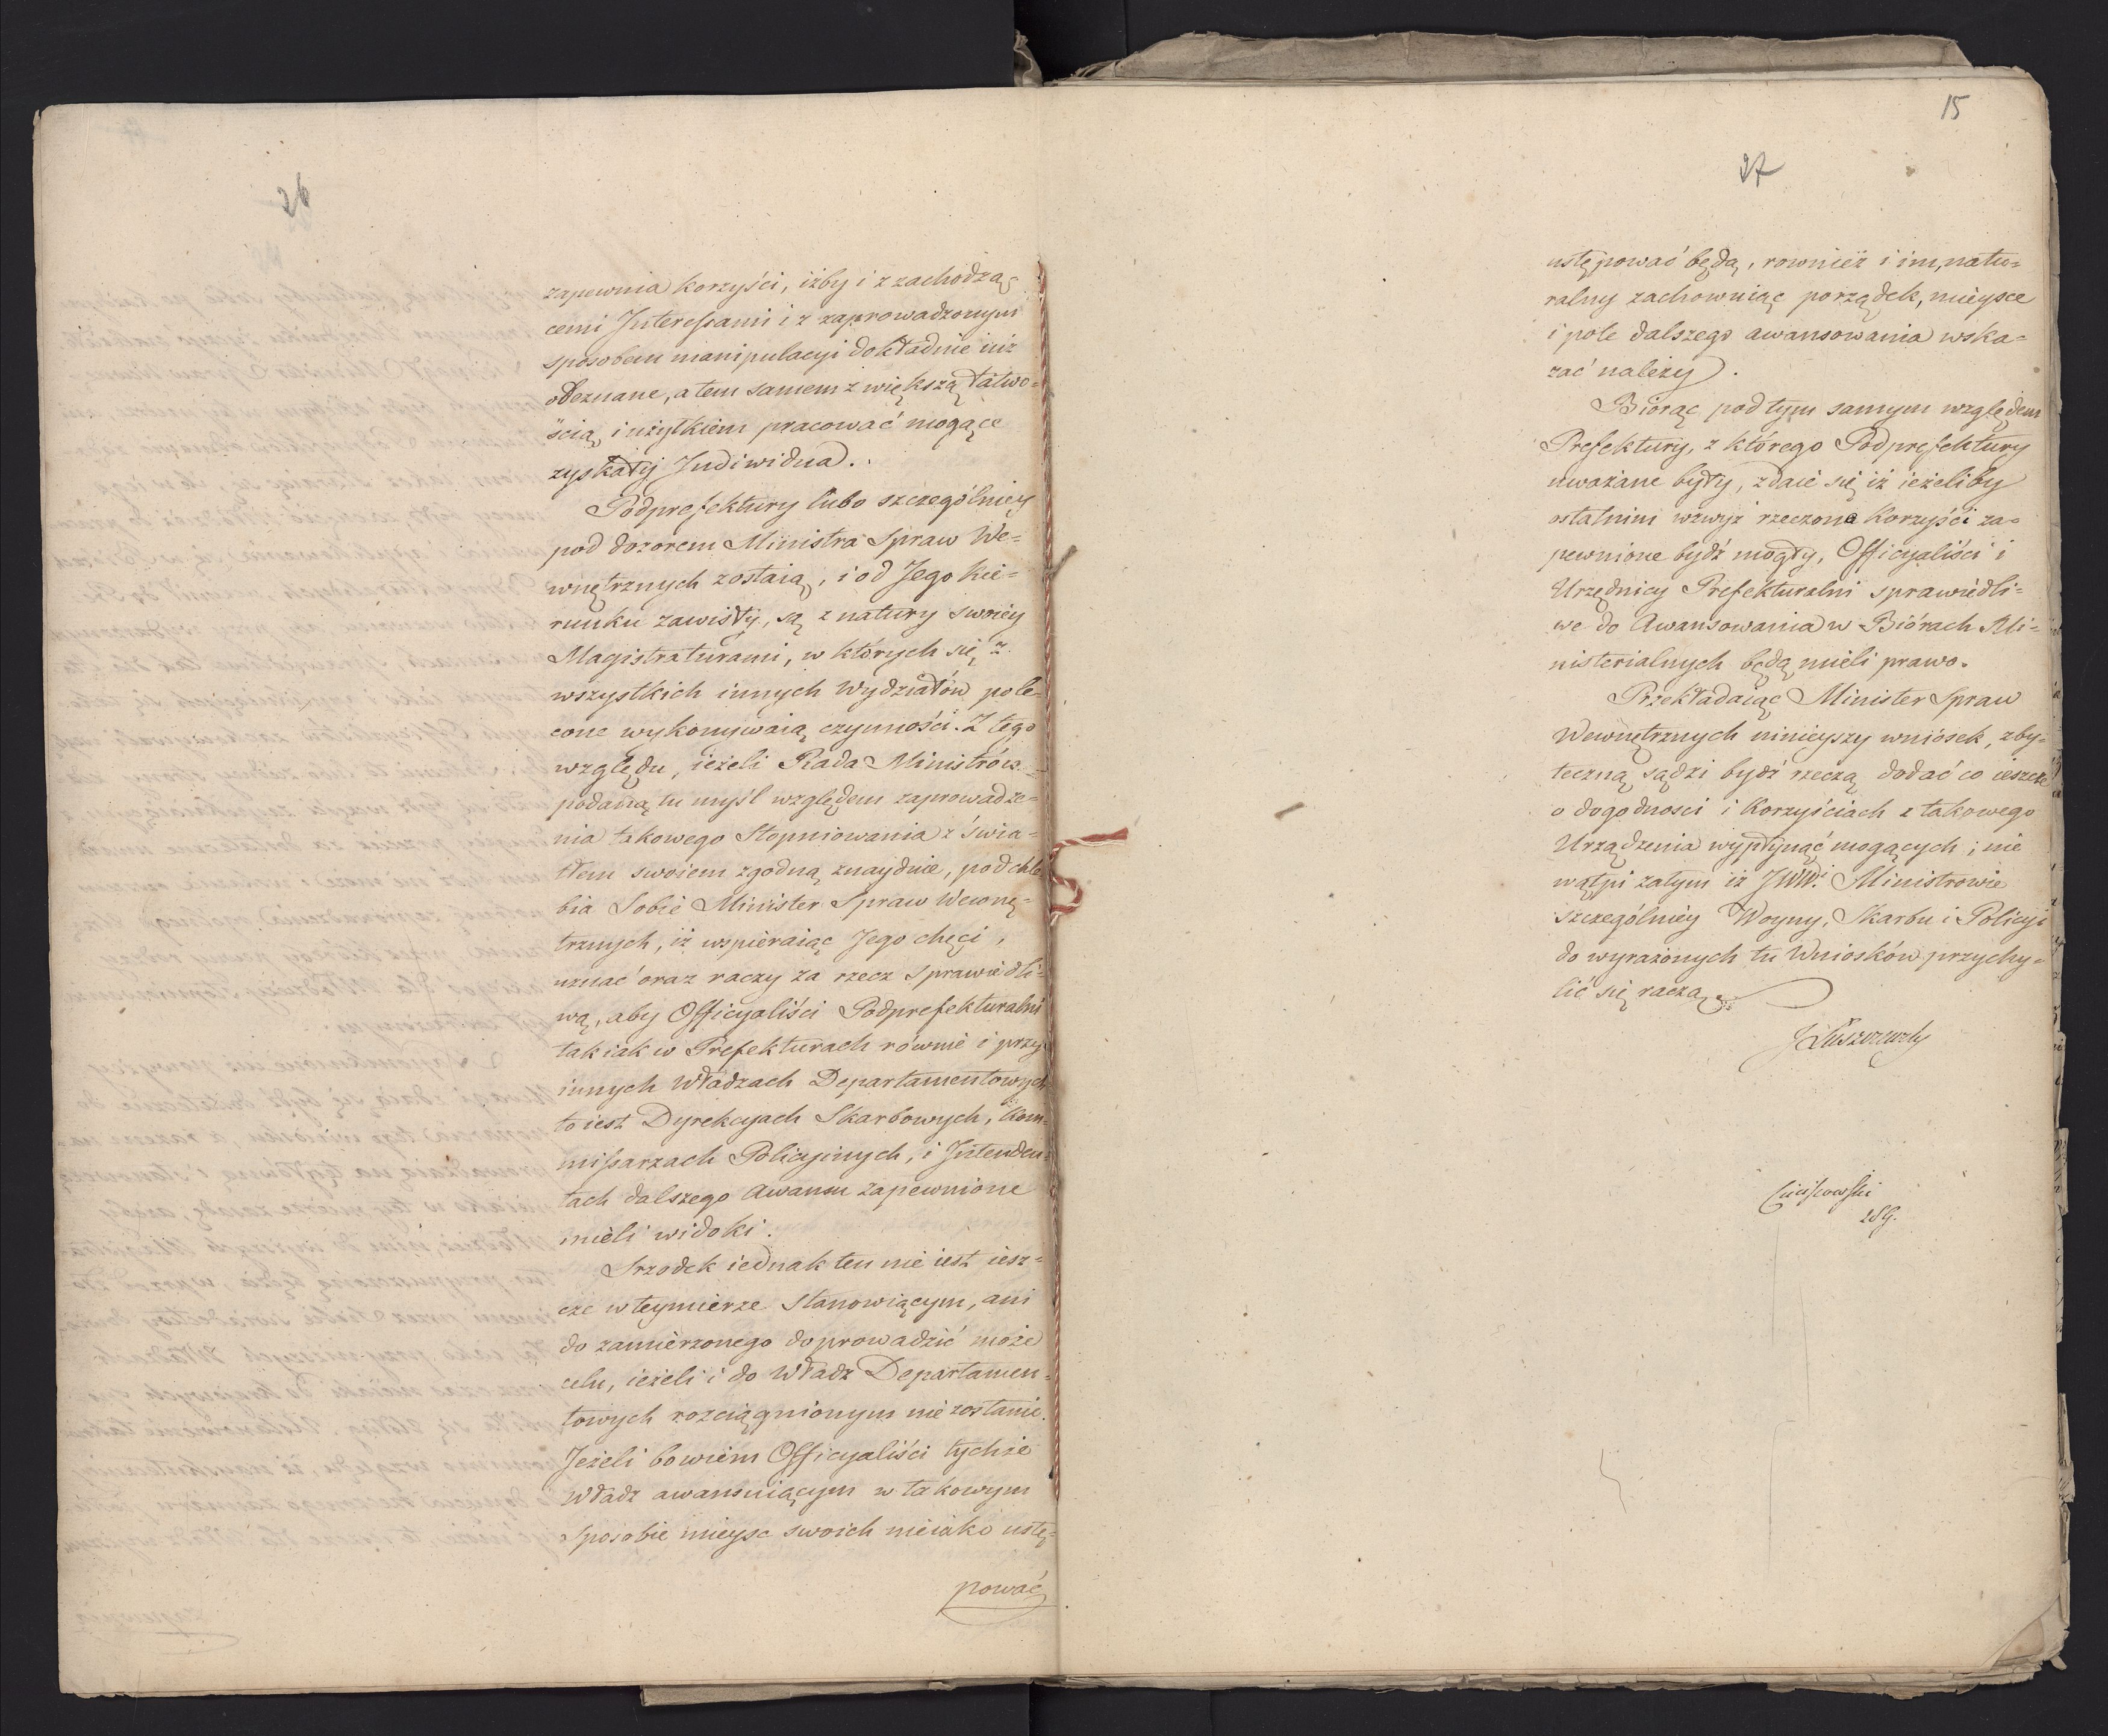 26
zapewnia korzyści, iżby i z zachodzą-
cemi Interessami i z zaprowadzonym
sposobem manipulacyi dokładnie iuż
obeznane, a tem samem z większą łatwo=
ścią, i użytkiem pracować mogące
zyskały Indiwidua.
Podprefektury lubo szczególniey
pod dozorem Ministra Spraw We=
wnętrznych zostaią, i od Jego kie=
runku zawisły, są z natury swoiey
Magistraturami, w których się z
wszystkich innych Wydziałów pole-
cone wykonywaią czynności. Z tego
względu, ieżeli Rada Ministrów
podaną tu myśl względem zaprowadze=
nia takowego Stopniowania z świa=
tłem swoiem zgodną znayduie, podchle
bia Sobie Minister Spraw Wewnę=
trznych, iż wspieraiąc Jego chęci,
uznać oraz raczy za rzecz sprawiedli=
wą, aby Officyaliści Podprefekturalni
tak iak w Prefekturach równie i przy
innych Władzach Departamentowych
to iest Dyrekcyach Skarbowych, Kom-
missarzach Policyinych, i Intenden=
tach dalszego Awansu zapewnione
mieli widoki.
Srzodek iednak ten nie iest iesz=
cze w teymierze Stanowiącym, ani
do zamierzonego doprowadzić może
celu, ieżeli i do Władz Departamen=
towych rozciągnionym nie zostanie.
Jeżeli bowiem Officyaliści tychże
Władz awansuiącym w takowym
Sposobie mieysc swoich nieiako ustę=
pować
15
27
ustępować będą, rownież i im, natu=
ralny zachowuiąc porządek, mieysce
i pole dalszego awansowania wska=
zać należy.
Biorąc pod tym samym względem
Prefektury, z którego Podprefektury
uważane były, zdaie się iż ieżeliby
ostatnim wzwyż rzeczone Korzyści za=
pewnione bydź mogły, Officyaliści i
Urzędnicy Prefekturalni sprawiedli=
we do Awansowania w Biórach Mi=
nisterialnych będą mieli prawo.
Przekładaiąc Minister Spraw
Wewnętrznych ninieyszy wniosek, zby=
teczną sądzi bydź rzeczą dodać co ieszcze
o dogodnosci i Korzyściach z takowego
Urządzenia wypłynąć mogących; nie
wątpi zatym iż JWWi Ministrowie
szczególniey Woyny, Skarbu i Policyi
do wyrażonych tu Wniosków przychy=
lić się raczą.
JŁuszczewsky